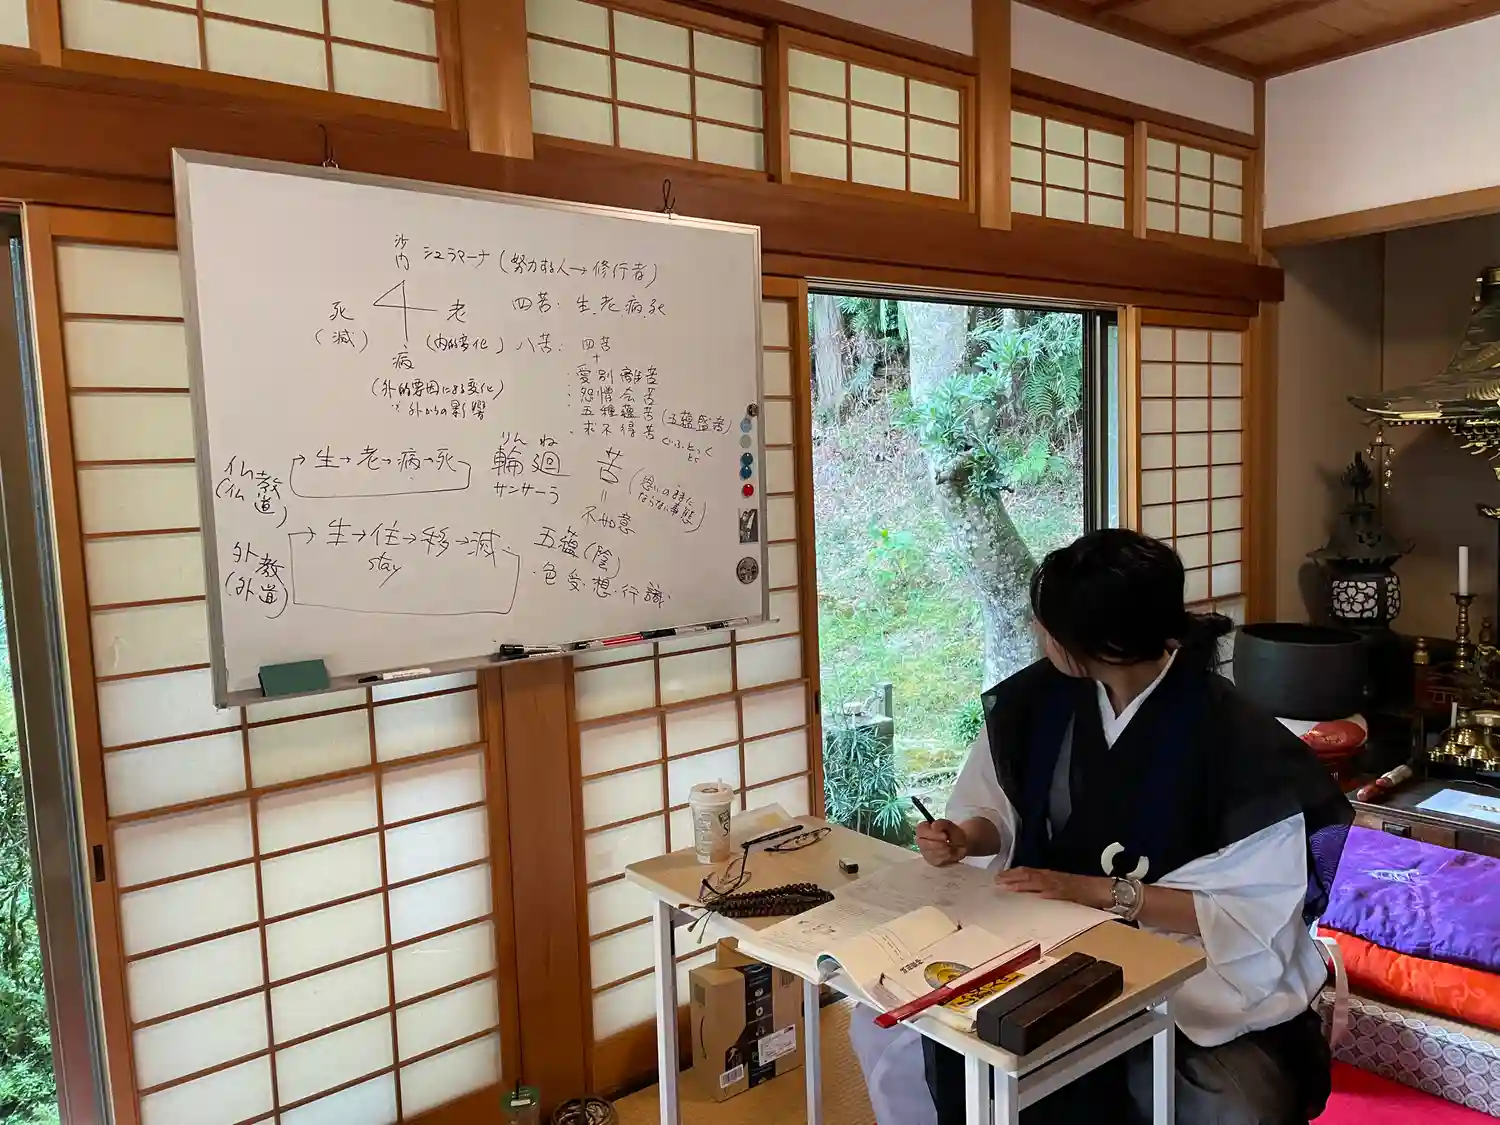 沙門 シュラマーナ (努力する人→修行者)
死 老 四苦: 生、老、病、死
(滅) (内的変化) 八苦: 四苦
病 +
(外的要因による変化) ・愛別離苦
外からの影響 ・怨憎会苦
・五種蘊苦 (五蘊盛苦)
・求不得苦 ぐふとっく
りんね
仏教 生→老→病→死 輪廻 苦
(仏道) サンサーラ = (思いのままにならない事態)
不如意
外教 生→住→移→滅 五蘊(陰)
(外道) stay ・色・受・想・行・識